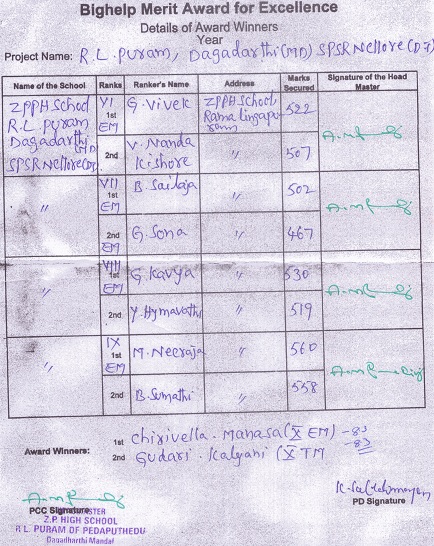 Bighelp Merit Award for Excellence
Details of Award Winners
Year
Project Name: R.L. Puram, Dagadarthi(MD) SPSR Nellore(DT)
Name of the School Ranks Ranker's Name Address Marks Secured Signature of the Head Master
ZPPH School R.L Puram Dagadarthi (MD) SPSR Nellore(DT) VI 1st EM G. Vivek ZPPH School, Rama lingapuram 522
2nd V. Nanda Kishore " 507
" VII 1st EM B. Sailaja " 502
2nd EM G. Sona " 467
" VIII 1st EM G. Kavya " 530
2nd Y. Hymavathi " 519
" IX 1st EM M. Neeraja " 560
2nd B. Sumathi " 558
Award Winners: 1st Chirivella. Manasa (X EM) - 83
2nd Gudari. Kalyani (X TM - 83
PCC Signature
PD Signature
Z.P. HIGH SCHOOL
R.L. PURAM OF PEDAPUTHEDU
Dagadharthi Mandal